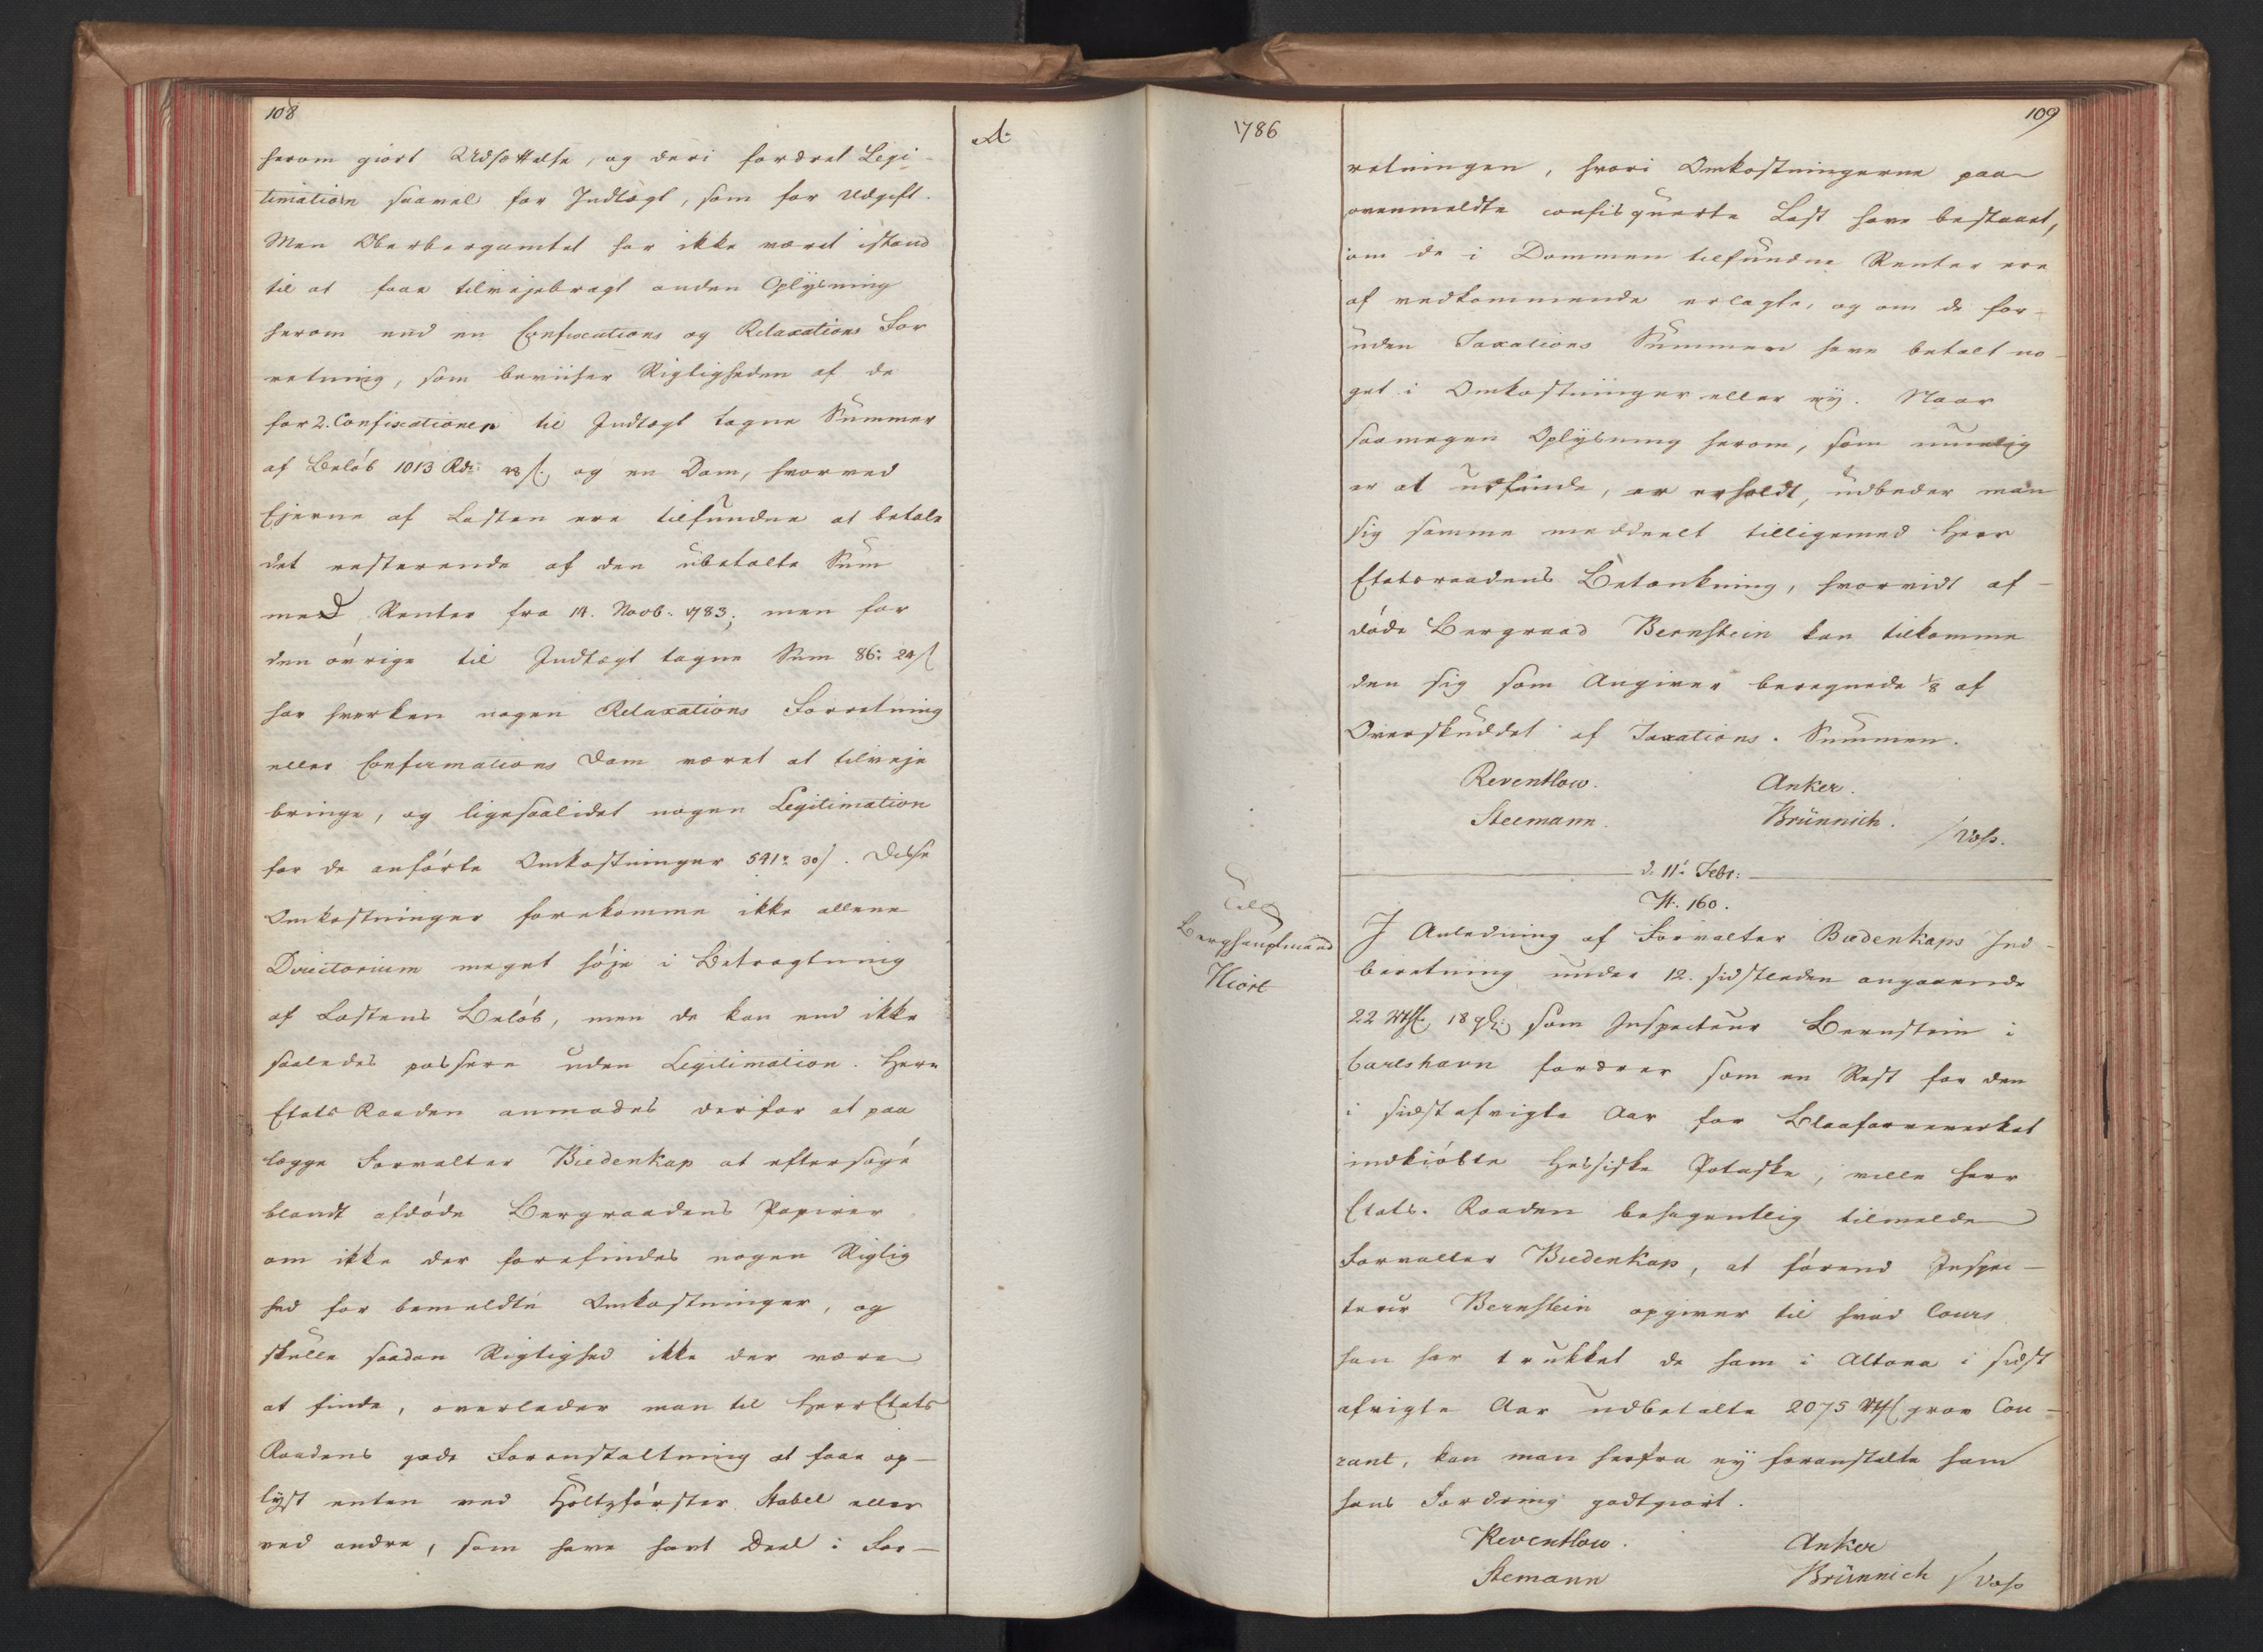 108
herom giort Udsættelse, og deri fordret Legi-
timation saavel for Indtægt, som for Udgift.
Men Oberbergamtet har ikke været istand
til at faae tilvejebragt anden Oplysning
herom end en Confiscations og Relaxations For
retning, som beviiser Rigtigheden af de
for 2. Confiscationer til Indtægt tagne Summer
af Beløb 1013 Rdr. 28 s. og en Dom, hvorved
Ejerne af Lasten ere tilfundne at betale
det resterende af den ubetalte Sum
med Renter fra 14. Novb. 1783; men for
den øvrige til Indtægt tagne Sum 86: 24 s
har hverken nogen Relaxations Forretning
eller Confirmations Dom været at tilveje
bringe, og ligesaalidet nogen Legitimation
for de anførte Omkostninger 541: 30 s. Disse
Omkostninger forekomme ikke allene
Directorium meget høje i Betragtning
af Lastens Beløb, men de kan end ikke
saaledes passere uden Legitimation. Herr
Etats Raaden anmodes derfor at paa
lægge Forvalter Biedenkap at eftersøge
blandt afdøde Bergraadens Papirer
om ikke der forefindes nogen Rigtig
hed for bemeldte Omkostninger, og
skulle saadan Rigtighed ikke der være
at finde, overlader man til Herr Etats
Raadens gode Foranstaltning at faae op-
lyst enten ved Holtzförster Stabel eller
ved andre, som have havt Deel i For-
A:
1786
109
retningen, hvori Omkostningerne paa
ovenmeldte confisquerte Last have bestaaet,
om de i Dommen tilfundne Renter ere
af vedkommende erlagte, og om de for-
uden Taxations Summen have betalt no-
get i Omkostninger eller ej. Naar
saamegen Oplysning herom, som muelig
er at udfinde, er erholdt, udbeder man
sig samme meddeelt tilligemed Herr
Etatsraadens Betænkning, hvorvidt af-
døde Bergraad Bernstein kan tilkomme
den sig som Angiver beregnede 1/8 af
Overskuddet af Taxations-Summen.
Reventlow. Anker.
Steemann. Brünnich.
/Voss.
d. 11. Febr:
N. 160.
Til
Berghauptmand
Hiort
I Anledning af Forvalter Biedenkaps Ind-
beretning under 12. sidstleden angaaende
22 Rth. 18 gl. som Inspecteur Bernstein i
Carlshavn fordrer som en Rest for den
i sidstafvigte Aar for Blaafarveverket
indkiøbte Hessiske Potaske, ville Herr
Etats-Raaden behagentlig tilmelde
Forvalter Biedenkap, at førend Inspec-
teur Bernstein opgiver til hvad Cours
han har trukket de ham i Altona i sidst
afvigte Aar udbetalte 2075 Rth grov Cou-
rant, kan man herfra ej foranstalte ham
hans Fordring godtgiort.
Reventlow. Anker
Stemann Brünnich /Voss